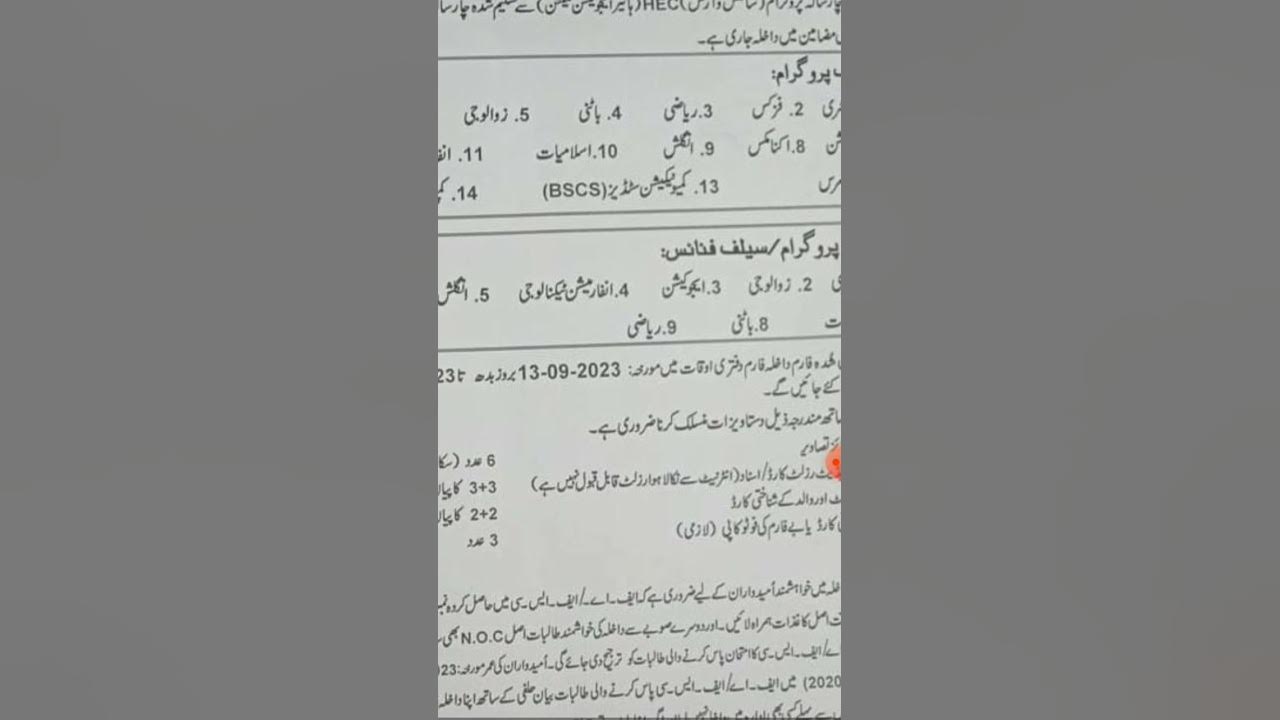 چار سالہ پروگرام (سائنس و آرٹس) HEC (ہائیر ایجوکیشن کمیشن) سے تسلیم شدہ چار سا
مضامین میں داخلہ جاری ہے۔
پروگرام:
2. فزکس 3. ریاضی 4. باٹنی 5. زوالوجی
8. اکنامکس 9. انگلش 10. اسلامیات 11.
13. کمیونیکیشن سٹڈیز (BSCS) 14.
پروگرام/سیلف فنانس:
2. زوالوجی 3. ایجوکیشن 4. انفارمیشن ٹیکنالوجی 5. انگلش
8. باٹنی 9. ریاضی
شدہ فارم داخلہ فارم دفتری اوقات میں مورخہ: 13-09-2023 بروز بدھ تا 23
کئے جائیں گے۔
مندرجہ ذیل دستاویزات منسلک کرنا ضروری ہے۔
تصاویر 6 عدد
رزلٹ کارڈ/اسناد (انٹرنیٹ سے نکالا ہوا رزلٹ قابل قبول نہیں ہے) 3+3
اور والد کے شناختی کارڈ 2+2
کارڈ یا بے فارم کی فوٹو کاپی (لازمی) 3 عدد
میں خواہشمند اُمیدواران کے لیے ضروری ہے کہ ایف۔اے۔/ایف۔ایس۔سی میں حاصل کردہ
اصل کاغذات ہمراہ لائیں۔ اور دوسرے صوبے سے داخلہ کی خواشمند طالبات اصل N.O.C بھی
اے/ایف۔ایس۔سی کا امتحان پاس کرنے والی طالبات کو ترجیح دی جائے گی۔ اُمیدواران کی عمر مورخہ:
2020) میں ایف۔اے/ایف۔ایس۔سی پاس کرنے والی طالبات بیان حلفی کے ساتھ اپنا داخلہ